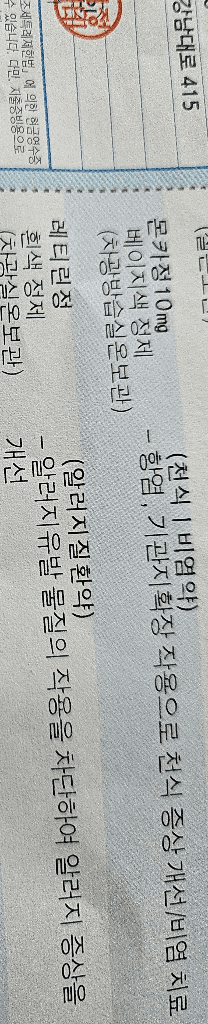 강남대로 415
조세특례제한법」에 의한 현금영수증
수 있습니다. 다만, 지출증빙용으로
몬카정10mg
베이지색 정제
(차광방습실온보관)
(천식 | 비염 약)
- 항염, 기관지확장 작용으로 천식 증상 개선/비염 치료
레티린정
흰색 정제
(차광실온보관)
(알러지질환약)
- 알러지유발 물질의 작용을 차단하여 알러지 증상을
개선